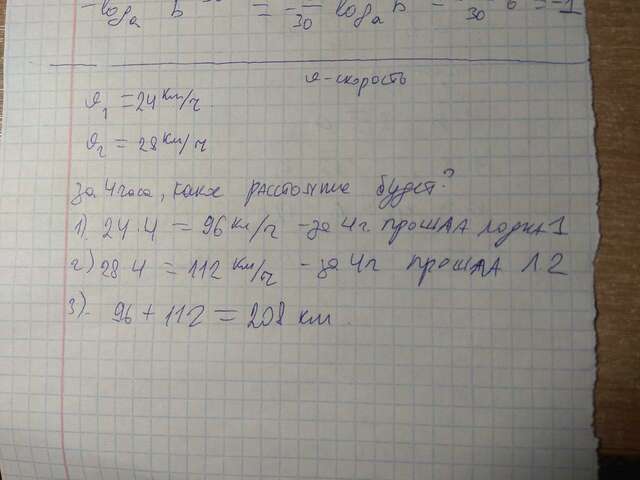 -log_a b = -/30 log_a b = -/30 · 6 = -1
v - скорость
v₁ = 24 км/ч.
v₂ = 28 км/ч
за 4 часа, какое расстояние будет?
1) 24·4 = 96 км/ч - за 4 ч. прошла лодка 1
2) 28·4 = 112 км/ч - за 4 ч прошла л 2
3). 96 + 112 = 208 км.